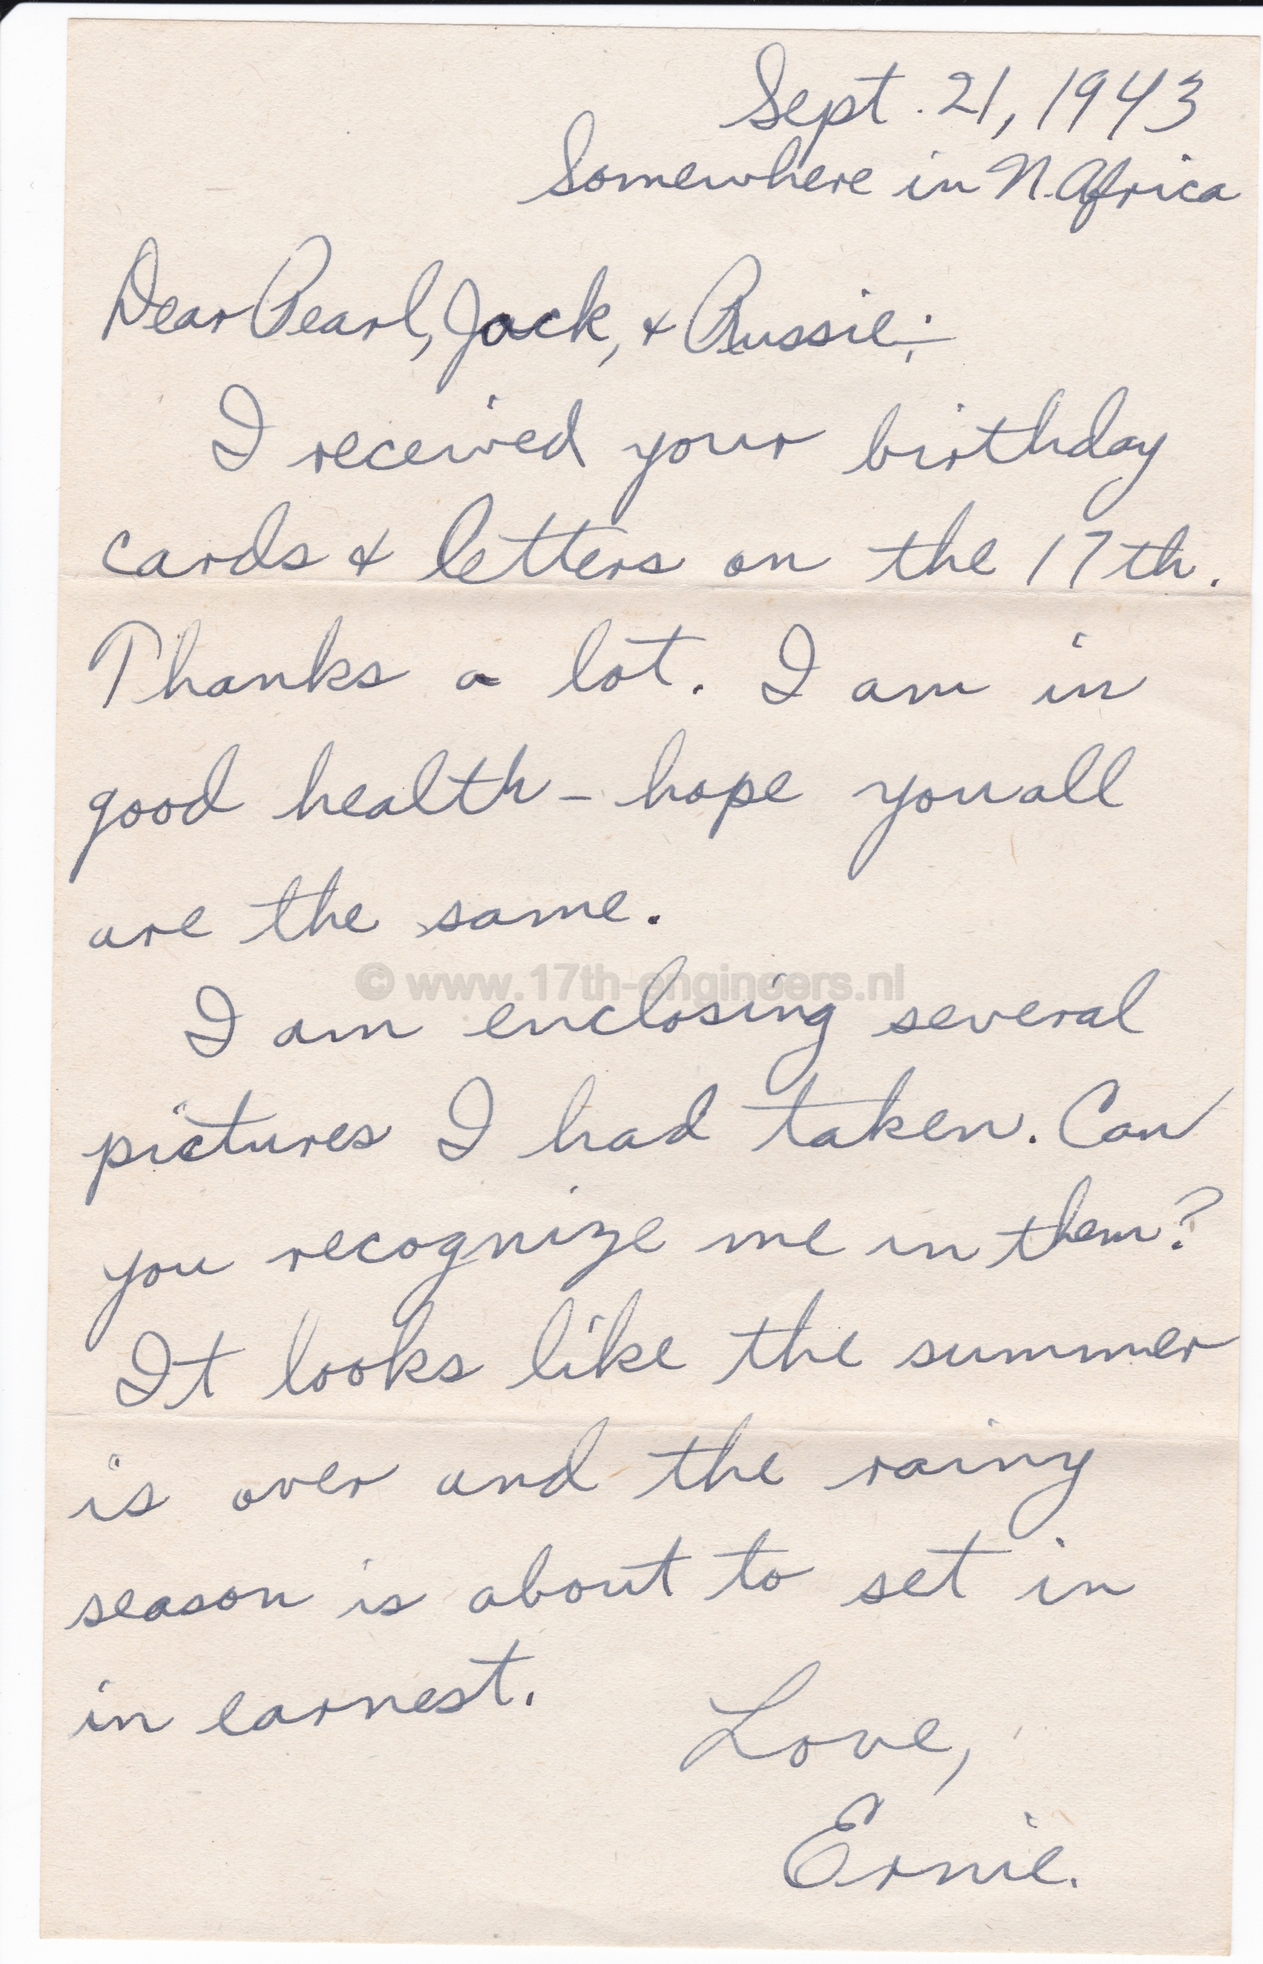 Sept. 21, 1943
Somewhere in N. Africa
Dear Pearl, Jack, & Russie;
I received your birthday
cards & letters on the 17th.
Thanks a lot. I am in
good health - hope you all
are the same.
© www.17th-engineers.nl
I am enclosing several
pictures I had taken. Can
you recognize me in them?
It looks like the summer
is over and the rainy
season is about to set in
in earnest.
Love,
Ernie.